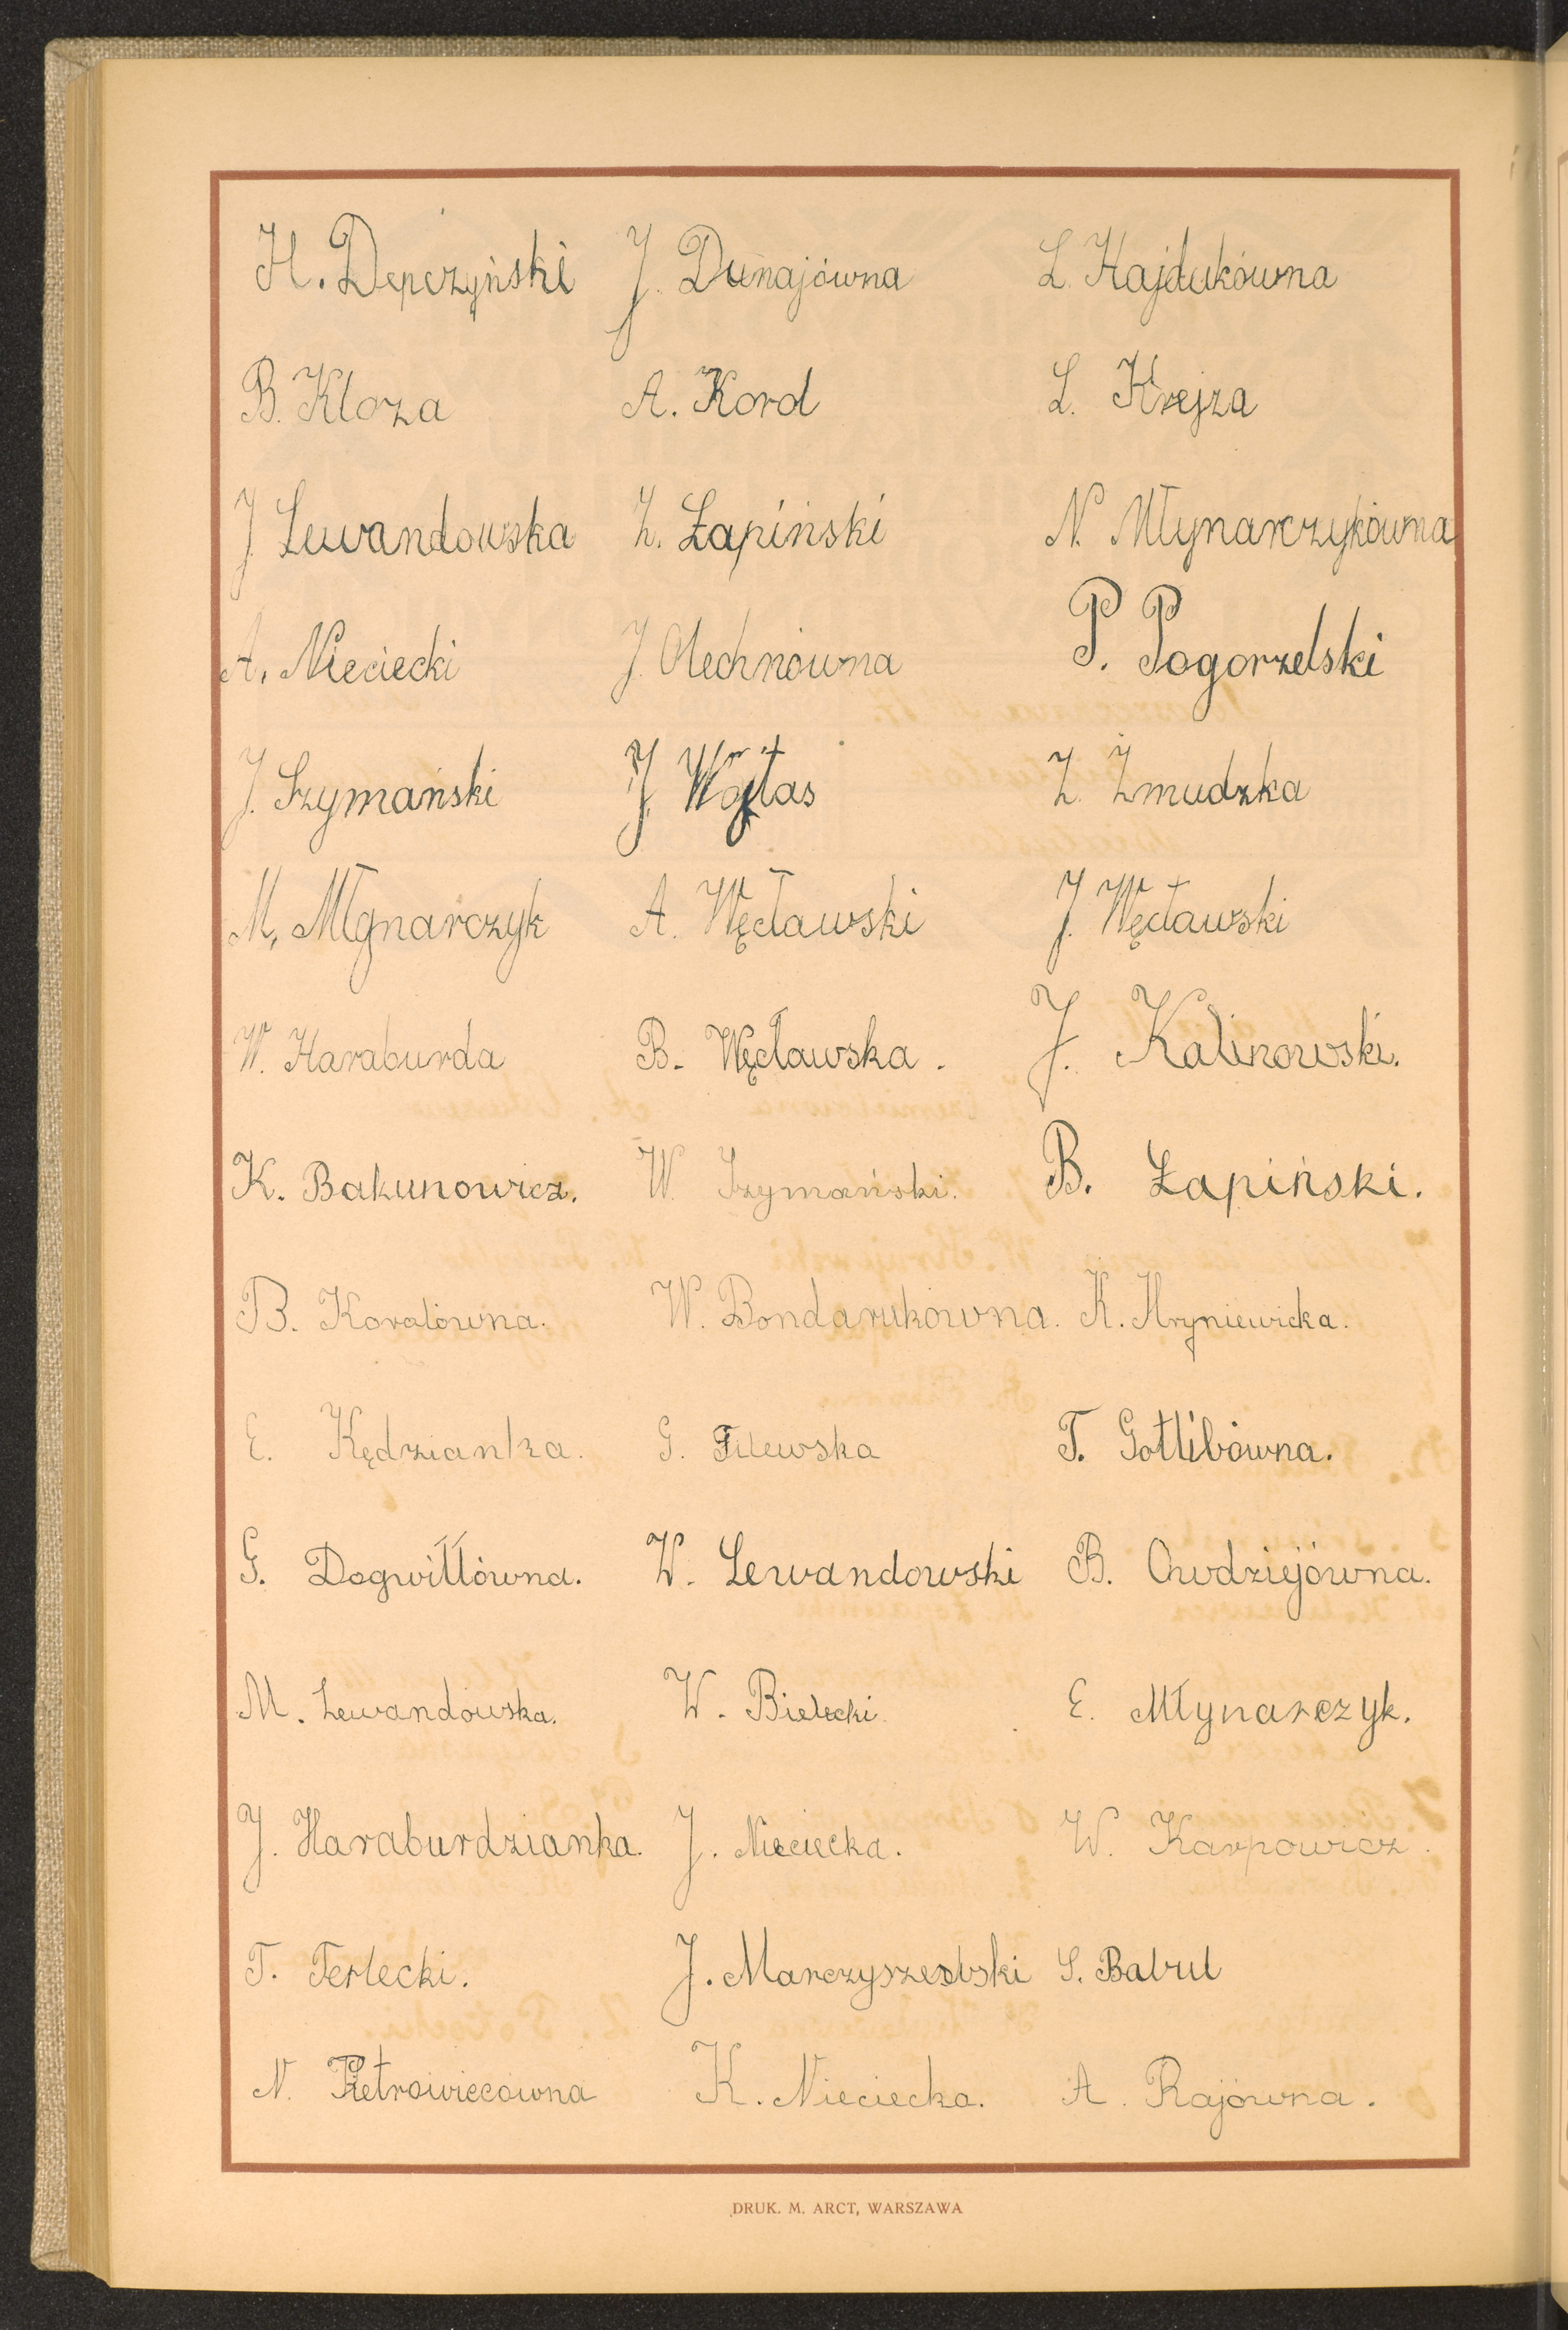 H. Depczyński J. Dunajówna L. Hajdukówna
B. Kloza A. Kord L. Krejza
J. Lewandowska Z. Łapiński N. Młynarczykówna
A. Nieciecki J. Olechnówna P. Pogorzelski
J. Szymański J. Wojtas Z. Żmudzka
M. Młynarczyk A. Węcławski J. Węcławski
W. Haraburda B. Węcławska. J. Kalinowski.
K. Bakunowicz. W. Szymański. B. Łapiński.
B. Koralówna. W. Bondarukówna. K. Hryniewicka.
E. Kędzianka. G. Filewska T. Gotlibówna.
G. Dogwiłłówna. W. Lewandowski B. Chwdziejówna.
M. Lewandowska. W. Bielecki. E. Młynarczyk.
J. Haraburdzianka. J. Nieciecka. W. Karpowicz.
T. Terlecki. J. S. Babul
N. Pietrowiecówna K. Nieciecka. A. Rajówna.
DRUK. M. ARCT, WARSZAWA